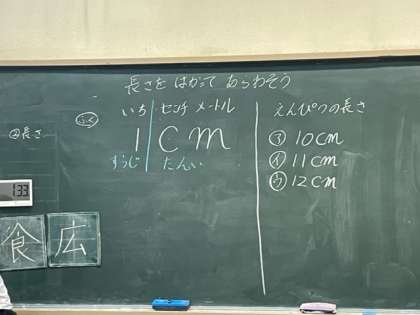 長さを はかって あらわそう
ふく
いち センチ メートル
1 cm
すうじ たんい
②長さ
133
食 広
えんぴつの長さ
㋐ 10cm
㋑ 11cm
㋒ 12cm